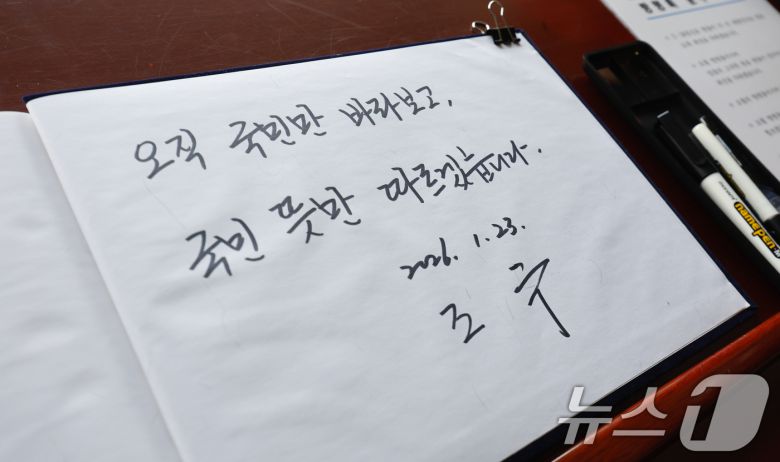 오직 국민만 바라보고,
국민 뜻만 따르겠습니다.
2026. 1. 23.
조 국
namepen
뉴스1